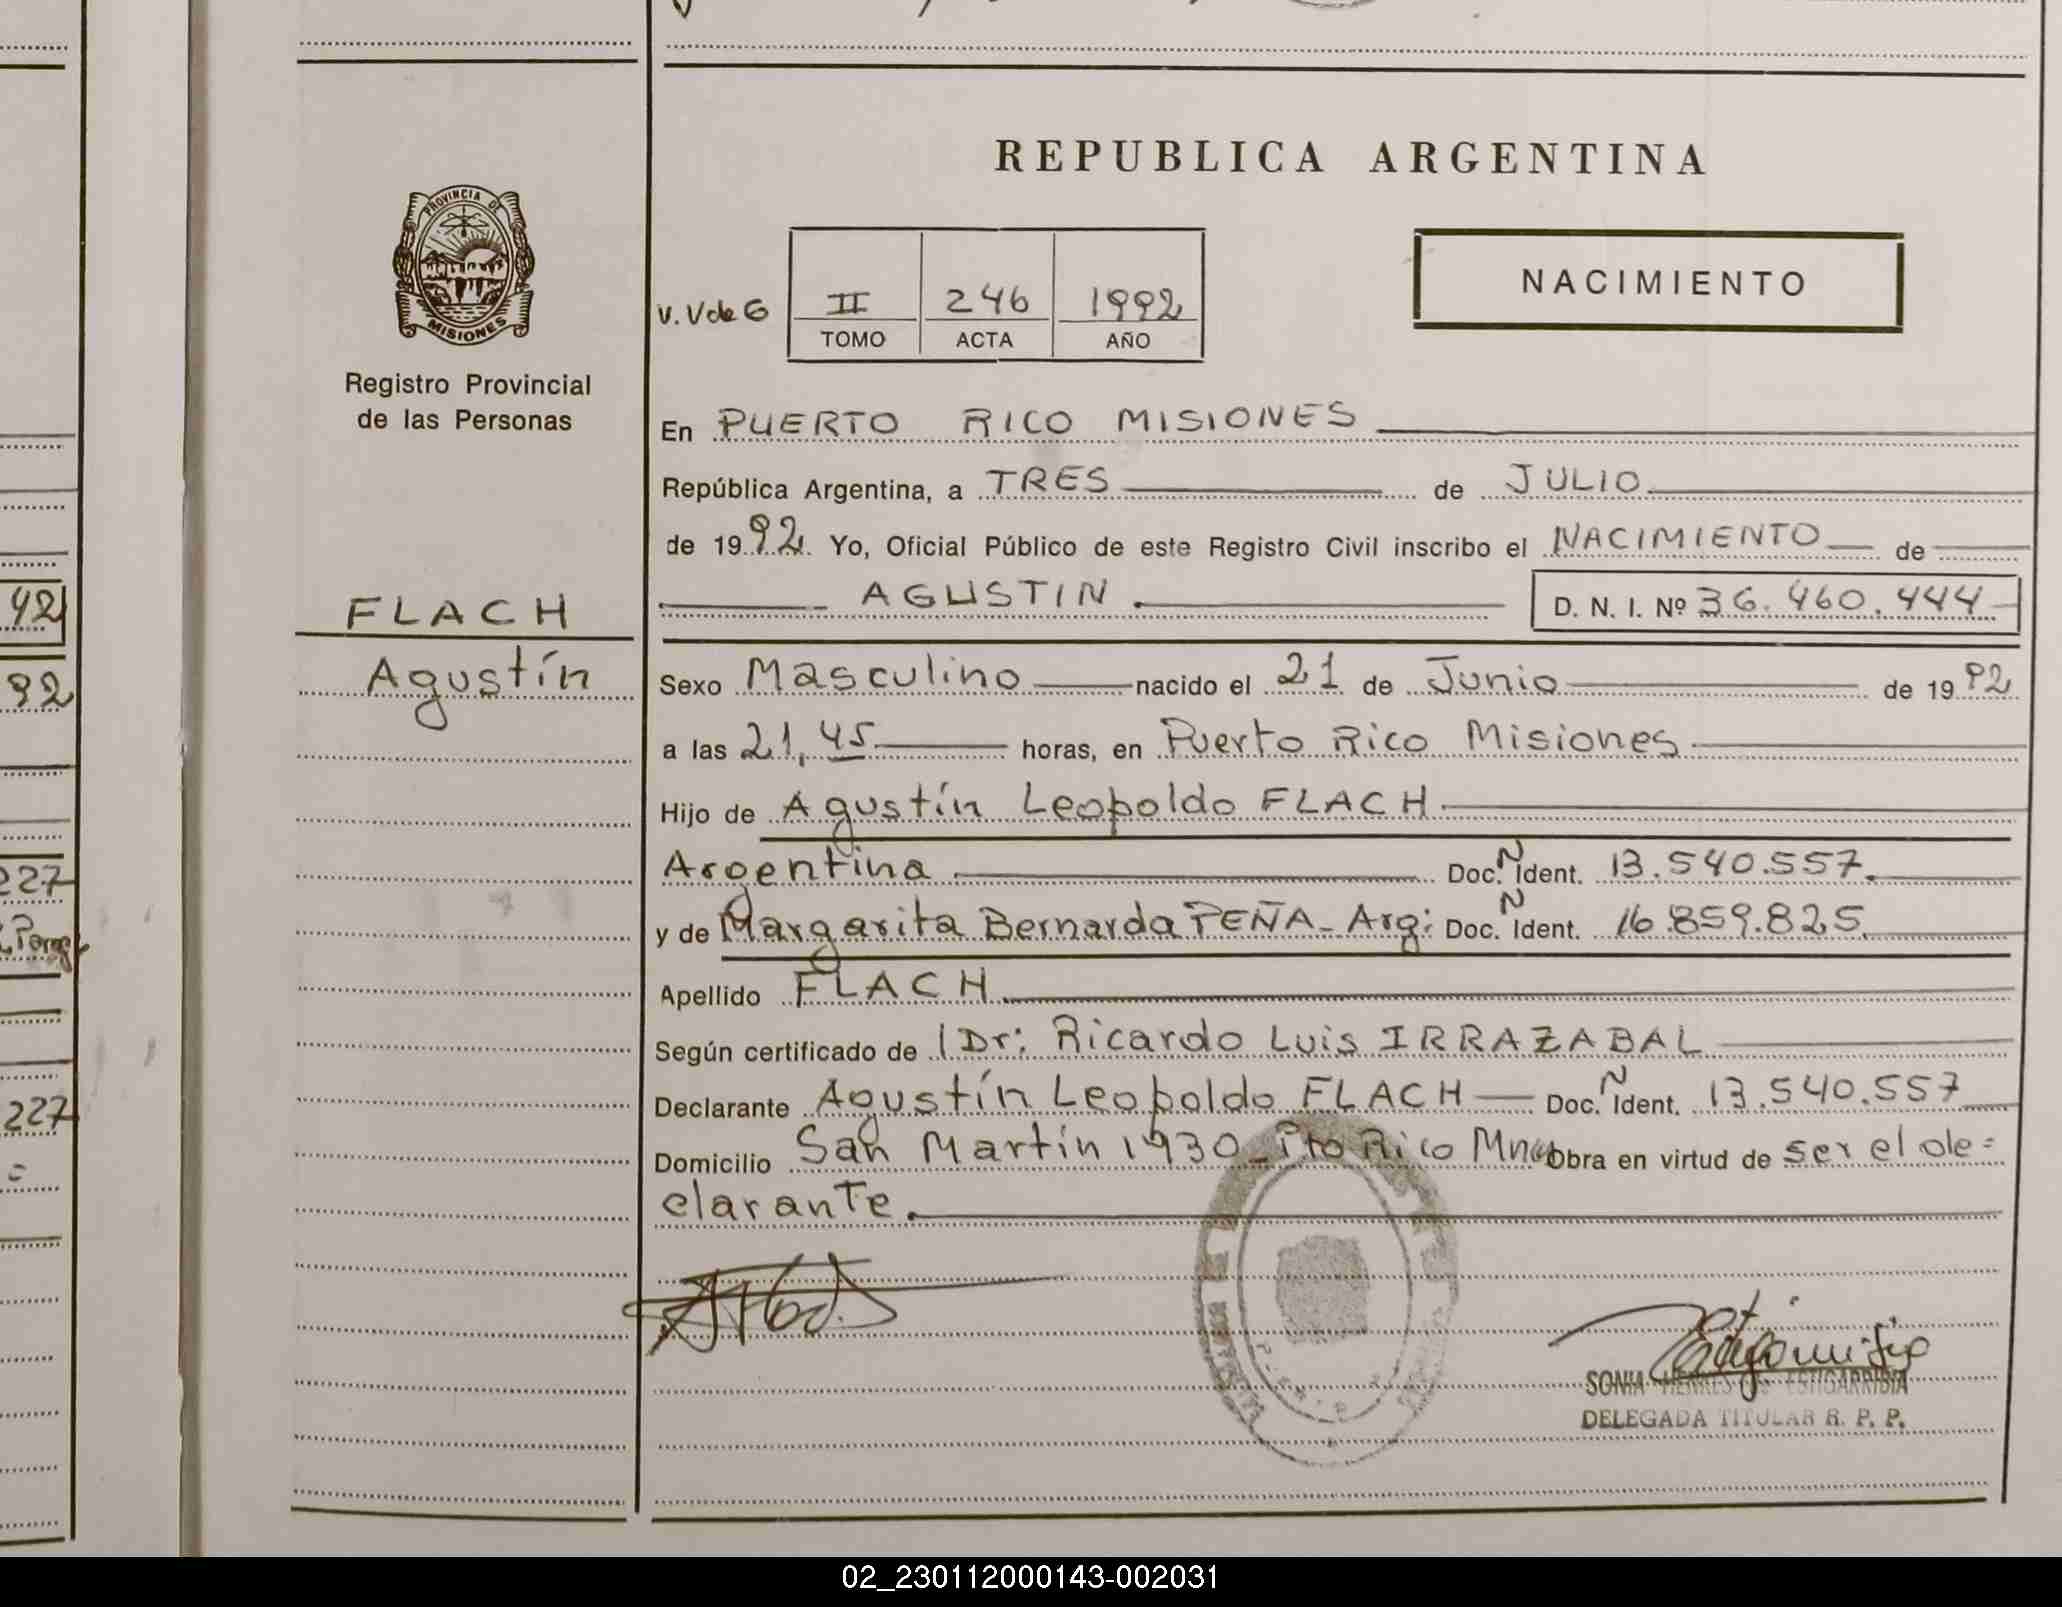 REPUBLICA ARGENTINA
PROVINCIA DE
MISIONES
Registro Provincial
de las Personas
V. V de G
II 246 1992
TOMO ACTA AÑO
NACIMIENTO
En PUERTO RICO MISIONES
República Argentina, a TRES de JULIO
de 1992. Yo, Oficial Público de este Registro Civil inscribo el NACIMIENTO de
AGUSTIN D. N. I. Nº 36.460.444
FLACH
Agustín
Sexo Masculino nacido el 21 de Junio de 1992
a las 21,45 horas, en Puerto Rico Misiones
Hijo de Agustín Leopoldo FLACH
Argentina Doc. N Ident. 13.540.557.
y de Margarita Bernarda PEÑA - Arg: Doc. N Ident. 16.859.825.
Apellido FLACH
Según certificado de Dr: Ricardo Luis IRRAZABAL
Declarante Agustín Leopoldo FLACH Doc. N Ident. 13.540.557
Domicilio San Martín 1930 - Pto Rico Mnes Obra en virtud de ser el de=
clarante.
SONIA ESTIGARRIBIA
DELEGADA TITULAR R. P. P.
42
92
227
227
02_230112000143-002031